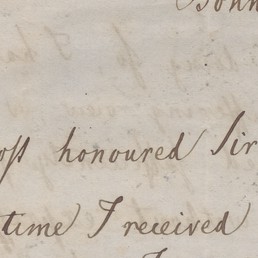 oſt honoured Sir
time I received